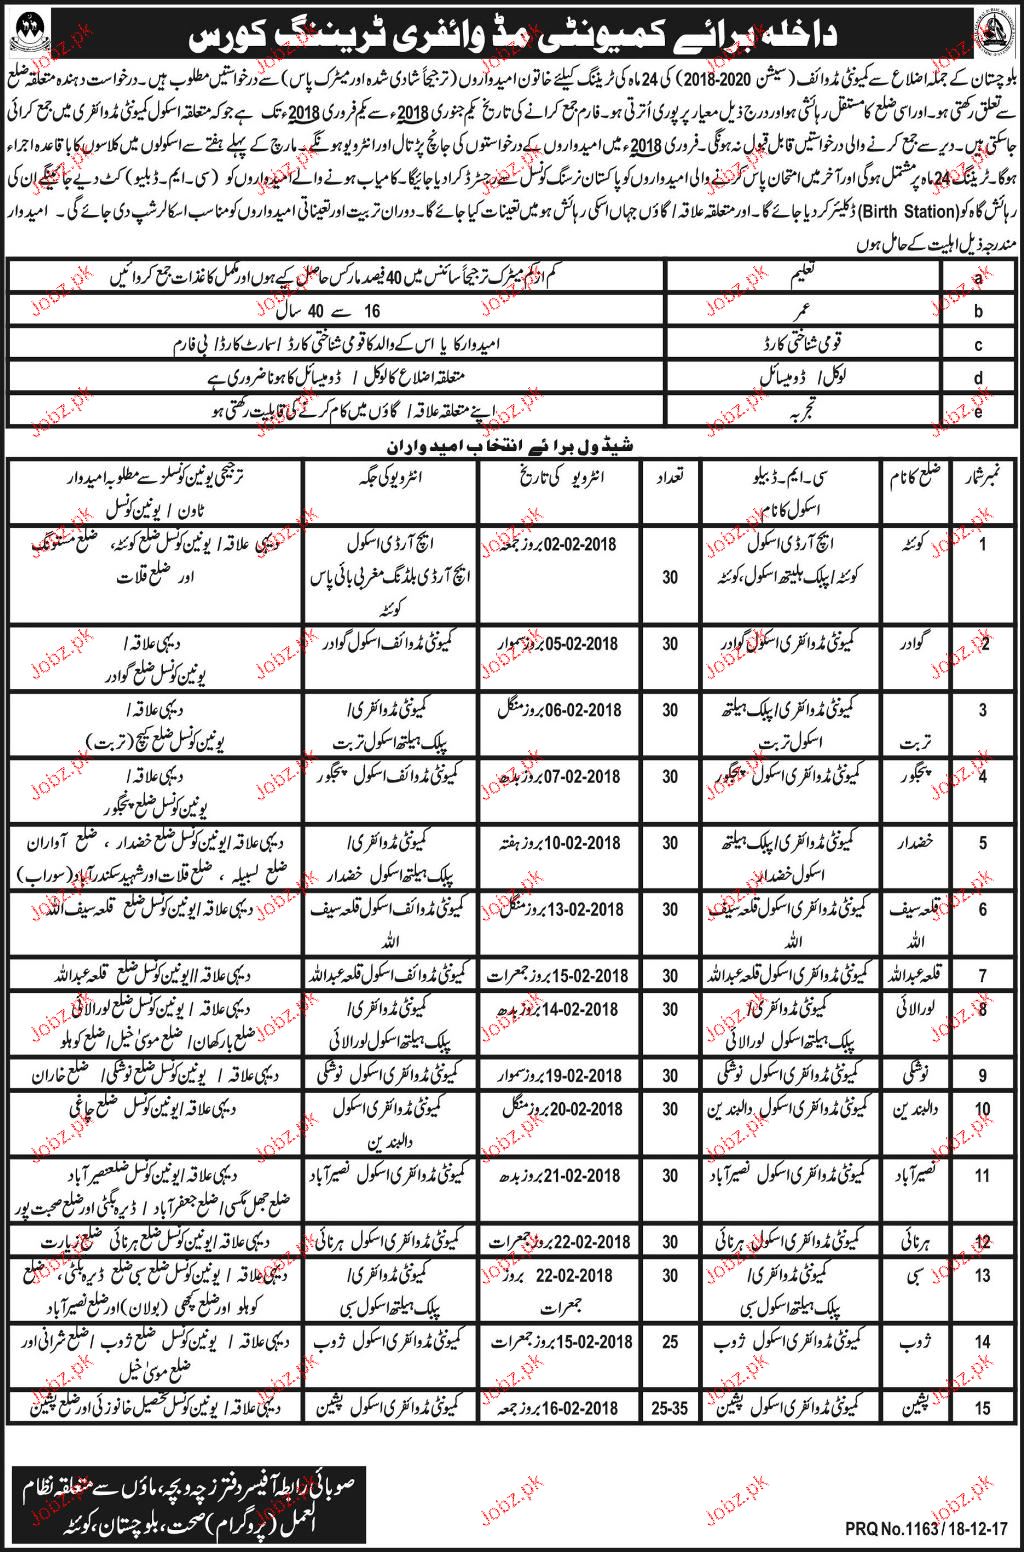 داخلہ برائے کمیونٹی مڈوائفری ٹریننگ کورس
بلوچستان کے جملہ اضلاع سے کمیونٹی مڈوائف (سیشن 2020-2018) کی 24 ماہ کی ٹریننگ کیلئے خاتون امیدواروں (ترجیحاً شادی شدہ اور میٹرک پاس) سے درخواستیں مطلوب ہیں۔ درخواست دہندہ متعلقہ ضلع
سے تعلق رکھتی ہو۔ اور اسی ضلع کا مستقل رہائشی ہو اور درج ذیل معیار پر پوری اُترتی ہو۔ فارم جمع کرانے کی تاریخ یکم جنوری 2018ء سے یکم فروری 2018ء تک ہے جو کہ متعلقہ اسکول کمیونٹی مڈوائفری میں جمع کرائی
جاسکتی ہیں۔ دیر سے جمع کرنے والی درخواستیں قابل قبول نہ ہوگی۔ فروری 2018ء میں امیدواروں کے درخواستوں کی جانچ پڑتال اور انٹرویو ہونگے۔ مارچ کے پہلے ہفتے سے اسکولوں میں کلاسوں کا باقاعدہ اجراء
ہوگا۔ ٹریننگ 24 ماہ پر مشتمل ہوگی اور آخر میں امتحان پاس کرنے والی امیدواروں کو پاکستان نرسنگ کونسل سے رجسٹرڈ کرادیا جائیگا۔ کامیاب ہونے والے امیدواروں کو (سی۔ایم۔ڈبلیو) کٹ دیے جائینگے ان کی
رہائش گاہ کو (Birth Station) ڈکلیئر کردیا جائے گا۔ اور متعلقہ علاقہ / گاؤں جہاں اسکی رہائش ہو میں تعینات کیا جائے گا۔ دوران تربیت اور تعیناتی امیدواروں کو مناسب اسکالرشپ دی جائے گی۔ امیدوار
مندرجہ ذیل اہلیت کے حامل ہوں
a تعلیم کم از کم میٹرک ترجیحاً سائنس میں 40 فیصد مارکس حاصل کیے ہوں اور مکمل کاغذات جمع کروائیں
b عمر 16 سے 40 سال
c قومی شناختی کارڈ امیدوار کا یا اس کے والد کا قومی شناختی کارڈ / سمارٹ کارڈ / بی فارم
d لوکل / ڈومیسائل متعلقہ اضلاع کا لوکل / ڈومیسائل کا ہونا ضروری ہے
e تجربہ اپنے متعلقہ علاقہ / گاؤں میں کام کرنے کی قابلیت رکھتی ہو
شیڈول برائے انتخاب امیدواران
نمبر شمار ضلع کا نام سی۔ایم۔ڈبیلو تعداد انٹرویو کی تاریخ انٹرویو کی جگہ ترجیحی یونین کونسلز سے مطلوبہ امیدوار
اسکول کا نام ٹاون / یونین کونسل
1 کوئٹہ ایچ آر ڈی اسکول 02-02-2018 بروز جمعہ ایچ آر ڈی اسکول دیہی علاقہ / یونین کونسل ضلع کوئٹہ، ضلع مستونگ
کوئٹہ / پبلک ہیلتھ اسکول، کوئٹہ 30 ایچ آر ڈی بلڈنگ مغربی بائی پاس اور ضلع قلات
کوئٹہ
2 گوادر کمیونٹی مڈوائفری اسکول گوادر 30 05-02-2018 بروز سموار کمیونٹی مڈوائف اسکول گوادر دیہی علاقہ /
یونین کونسل ضلع گوادر
3 کمیونٹی مڈوائفری / پبلک ہیلتھ 30 06-02-2018 بروز منگل کمیونٹی مڈوائفری / دیہی علاقہ /
تربت اسکول تربت پبلک ہیلتھ اسکول تربت یونین کونسل ضلع کیچ (تربت)
4 پنجگور کمیونٹی مڈوائفری اسکول پنجگور 30 07-02-2018 بروز بدھ کمیونٹی مڈوائف اسکول پنجگور دیہی علاقہ /
یونین کونسل ضلع پنجگور
5 خضدار کمیونٹی مڈوائفری / پبلک ہیلتھ 30 10-02-2018 بروز ہفتہ کمیونٹی مڈوائفری / دیہی علاقہ / یونین کونسل ضلع خضدار، ضلع آواران
اسکول خضدار پبلک ہیلتھ اسکول خضدار ضلع لسبیلہ، ضلع قلات اور شہید سکندر آباد (سوراب)
6 قلعہ سیف کمیونٹی مڈوائفری اسکول قلعہ سیف 30 13-02-2018 بروز منگل کمیونٹی مڈوائف اسکول قلعہ سیف دیہی علاقہ / یونین کونسل ضلع قلعہ سیف اللہ
اللہ اللہ اللہ
7 قلعہ عبداللہ کمیونٹی مڈوائفری اسکول قلعہ عبداللہ 30 15-02-2018 بروز جمعرات کمیونٹی مڈوائف اسکول قلعہ عبداللہ دیہی علاقہ / یونین کونسل ضلع قلعہ عبداللہ
8 لورالائی کمیونٹی مڈوائفری / 30 14-02-2018 بروز بدھ کمیونٹی مڈوائفری / دیہی علاقہ / یونین کونسل ضلع لورالائی
پبلک ہیلتھ اسکول لورالائی پبلک ہیلتھ اسکول لورالائی ضلع بارکھان / ضلع موسیٰ خیل / ضلع کوہلو
9 نوشکی کمیونٹی مڈوائفری اسکول نوشکی 30 19-02-2018 بروز سموار کمیونٹی مڈوائفری اسکول نوشکی دیہی علاقہ / یونین کونسل ضلع نوشکی / ضلع خاران
10 دالبندین کمیونٹی مڈوائفری اسکول دالبندین 30 20-02-2018 بروز منگل کمیونٹی مڈوائفری اسکول دیہی علاقہ / یونین کونسل ضلع چاغی
دالبندین
11 نصیر آباد کمیونٹی مڈوائفری اسکول نصیر آباد 30 21-02-2018 بروز بدھ کمیونٹی مڈوائفری اسکول نصیر آباد دیہی علاقہ / یونین کونسل ضلع نصیر آباد
ضلع جھل مگسی / ضلع جعفر آباد / ڈیرہ بگٹی اور ضلع صحبت پور
12 ہرنائی کمیونٹی مڈوائفری اسکول ہرنائی 30 22-02-2018 بروز جمعرات کمیونٹی مڈوائفری اسکول ہرنائی دیہی علاقہ / یونین کونسل ضلع ہرنائی ضلع زیارت
13 سبی کمیونٹی مڈوائفری / 30 22-02-2018 بروز کمیونٹی مڈوائفری / دیہی علاقہ / یونین کونسل ضلع سبی ضلع ڈیرہ بگٹی، ضلع
پبلک ہیلتھ اسکول سبی جمعرات پبلک ہیلتھ اسکول سبی کوہلو اور ضلع کچھی (بولان) اور ضلع نصیر آباد
14 ژوب کمیونٹی مڈوائفری اسکول ژوب 25 15-02-2018 بروز جمعرات کمیونٹی مڈوائفری اسکول ژوب دیہی علاقہ / یونین کونسل ضلع ژوب / ضلع شرانی اور
ضلع موسیٰ خیل
15 پشین کمیونٹی مڈوائفری اسکول پشین 25-35 16-02-2018 بروز جمعہ کمیونٹی مڈوائفری اسکول پشین دیہی علاقہ / یونین کونسل تحصیل خانوزئی اور ضلع پشین
صوبائی رابطہ آفیسر دفتر زچہ و بچہ، ماؤں سے متعلقہ نظام
العمل (پروگرام) صحت، بلوچستان، کوئٹہ
PRQ No.1163/18-12-17
Jobz.pk